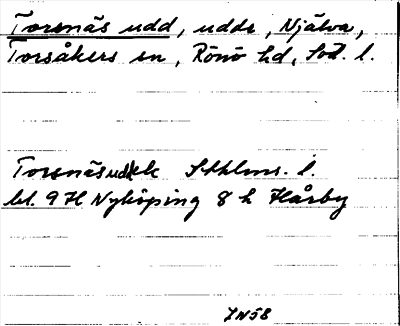 Torsnäs udd, udde, Själva,
Torsåkers sn, Rönö hd, Söd. l.
Torsnäsudd ek Sthlms. l.
bl. 9H Nyköping 8 h Hårby
IN58